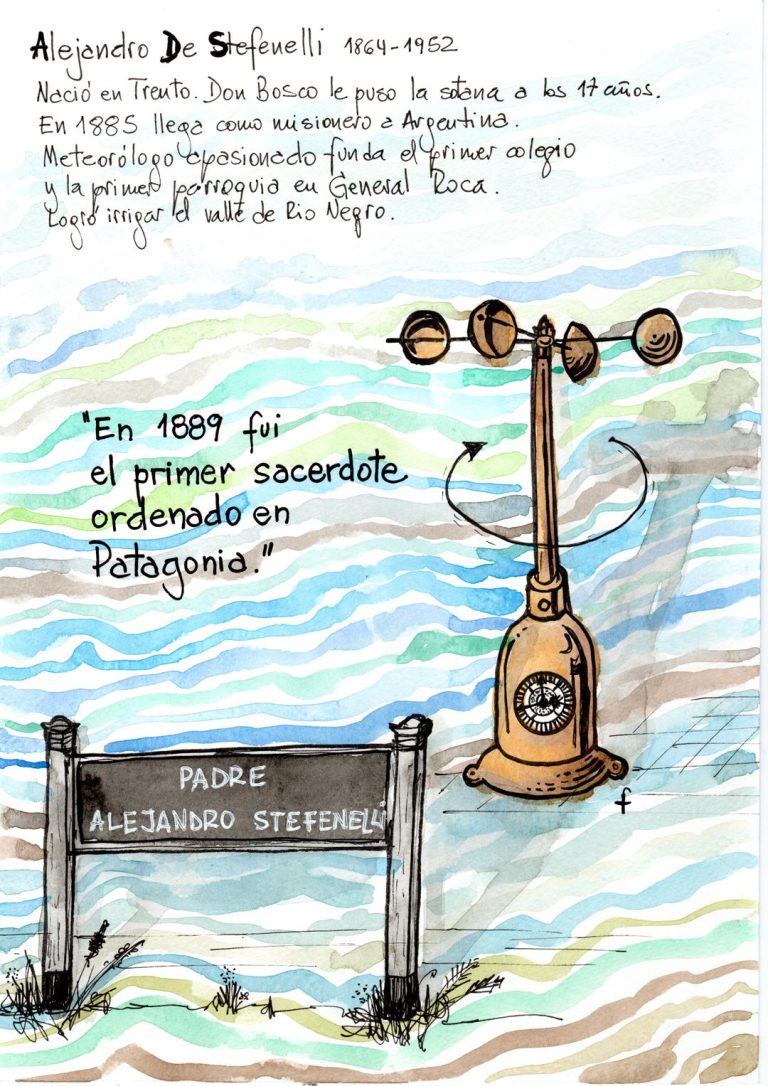 Alejandro De Stefenelli 1864-1952
Nació en Trento. Don Bosco le puso la sotana a los 17 años.
En 1885 llega como misionero a Argentina.
Meteorólogo apasionado funda el primer colegio
y la primera parroquia en General Roca.
Logró irrigar el valle de Rio Negro.
"En 1889 fui
el primer sacerdote
ordenado en
Patagonia."
PADRE
ALEJANDRO STEFENELLI
f